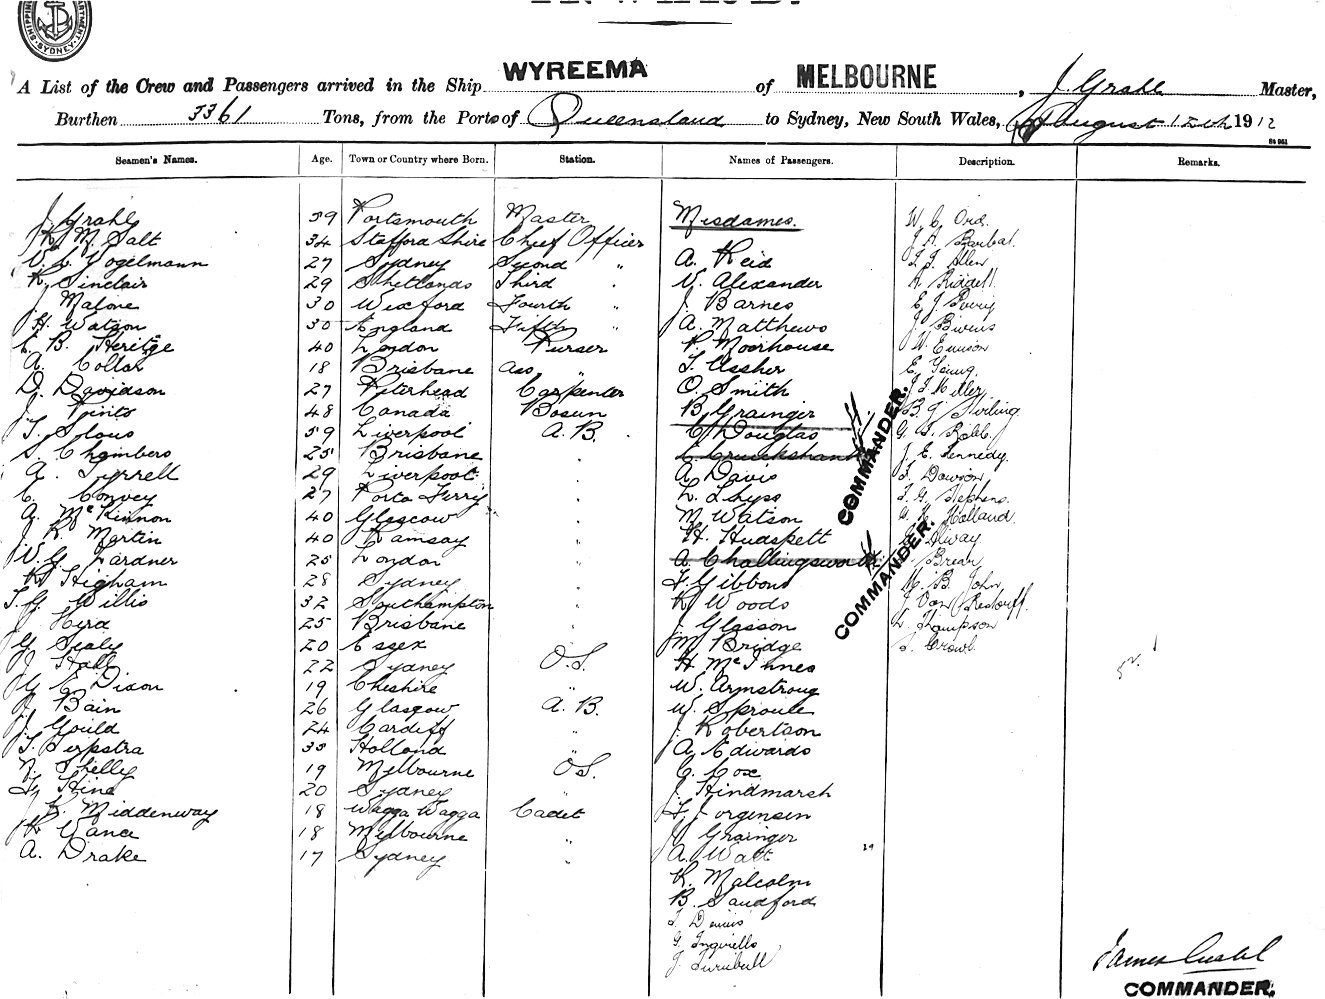 SYDNEY
A List of the Crew and Passengers arrived in the Ship WYREEMA of MELBOURNE, J. Grahl Master,
Burthen 3361 Tons, from the Port of Queensland to Sydney, New South Wales, August 12th 1912
Seamen's Names. Age. Town or Country where Born. Station. Names of Passengers. Description. Remarks.
J Grahl 59 Portsmouth Master Mesdames. W. C. Ord.
K. M. Salt 34 Stafford Shire Chief Officer J A Barbat.
Vogelmann 27 Sydney Second " A. Reid Allen
K. Sinclair 29 Shetlands Third V. Alexander A Riddell.
J Malone 30 Wexford Fourth " J. Barnes E J
H. Watson 30 England Fifth " A. Matthews J Bivens
C. B. Heritge 40 London Purser P. Moorhouse W
A. Collar 18 Brisbane Ass. " T. Assher E Young.
D. Davidson 27 Peterhead Carpenter O. Smith Miller
J Pinto 48 Canada Bosun B. Grainger B. J Stirling
T. 59 Liverpool A.B. C Douglas G. Robb.
S. Chambers 25 Brisbane C. Cruickshank J E Kennedy.
A. Tyrrell 29 Liverpool A Davis Dawson
C. Convey 27 Porta Ferry L. Stephens
A. McKinnon 40 Glascow M Watson Holland
J. R. Martin 40 Ramsay H. Hudspett Alway
W. G. Lardner 25 London A Challingsworth Brian
Higham 28 Sydney F. Gibbons M. B. John
T. G. Willis 32 Southampton K Woods Von
25 Brisbane J Glasson Thompson
G. Sealy 20 Essex J M Bridge Crowl
J Hall 22 Sydney O.S. H McInnes
G. E Dixon 19 Cheshire " W. Armstroug
J Bain 26 Glasgow A.B. W. Sproule
J Gould 24 Cardiff " J. Robertson
T. Terpstra 33 Holland " A Edwards
Shelly 19 Melbourne O.S. C. Cox
Hine 20 Sydney J. Hindmarsh
Middenway 18 Wagga Wagga Cadet F. Jorgensen
K Vance 18 Melbourne " Grainger
A. Drake 17 Sydney A. Watt
K. Malcolm
B. Sandford
J. Turnbull
COMMANDER.
COMMANDER.
James
COMMANDER.